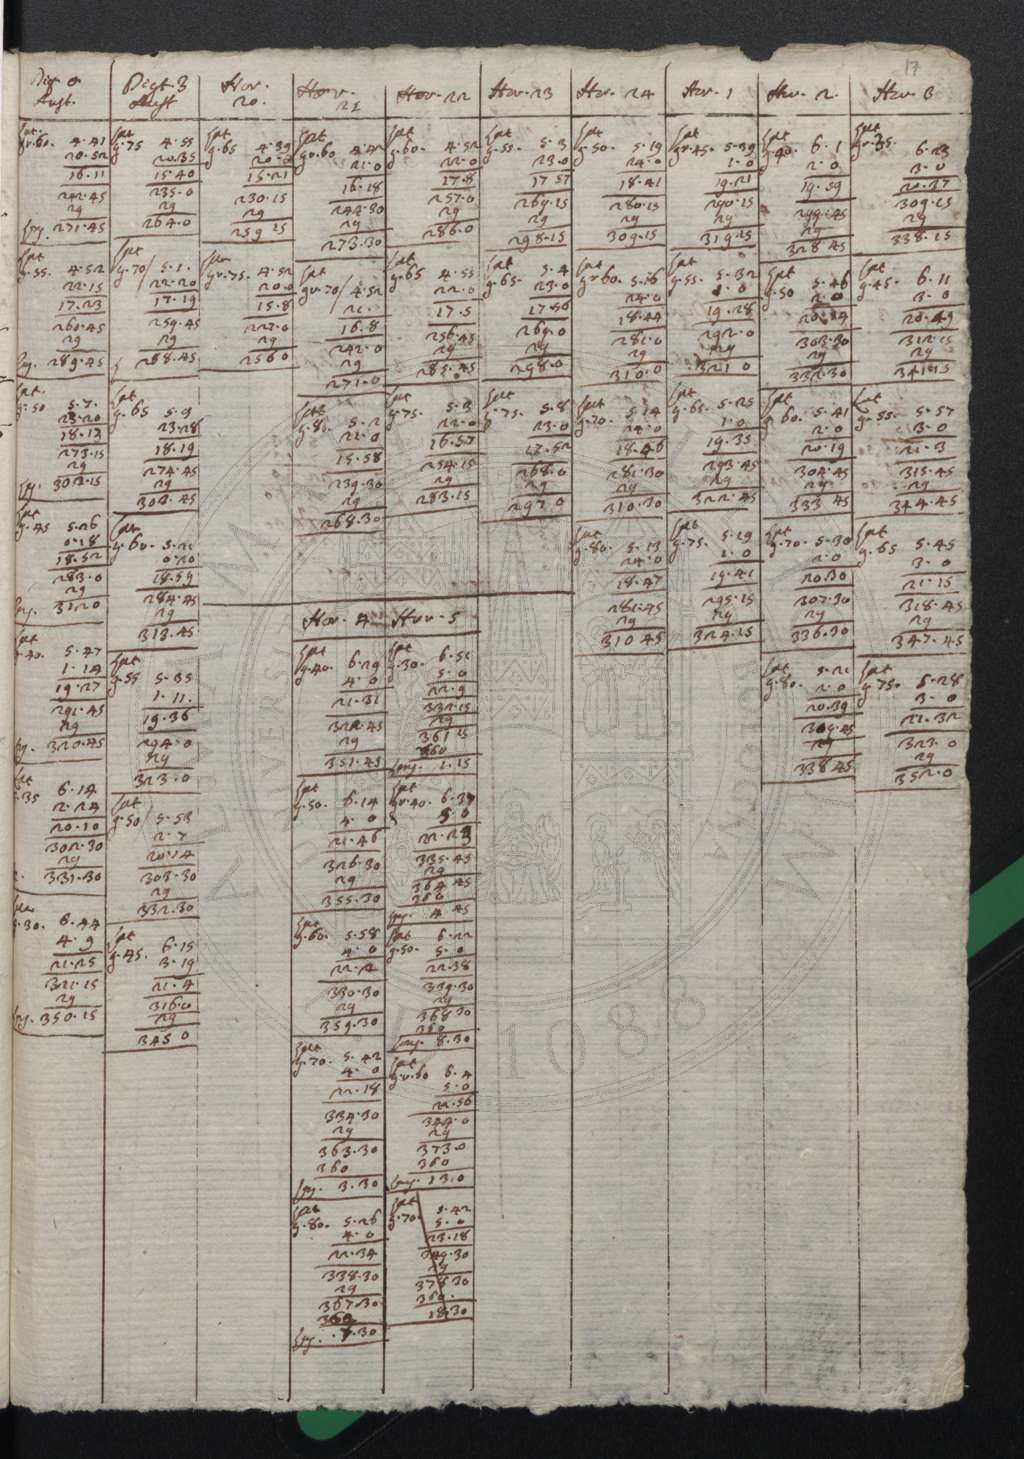 17
Digt. 3
Aust
Hor.
20.
Hor.
21
Hor. 22
Hor. 23
Hor. 24
Hor. 1
Hor. 2.
Hor. 3
gr. 60. 4.41
20.52
16.11
242.45
29
271.45
g. 55. 4.52
22.15
17.23
260.45
29
289.45
g. 50 5.7
23.20
18.13
273.15
29
302.15
g. 45 5.26
0.18
18.52
283.0
29
312.0
40. 5.47
1.14
19.27
291.45
29
320.45
35 6.14
2.24
20.10
302.30
29
331.30
30. 6.44
4.9
21.25
321.15
29
350.15
g. 75 4.55
20.35
15.40
235.0
29
264.0
g. 70 5.1.
22.20
17.19
259.45
29
288.45
g. 65 5.9
23.28
18.19
274.45
29
303.45
g. 60. 5.21
0.20
18.59
284.45
29
313.45
g. 55 5.35
1.11.
19.36
294.0
29
323.0
g. 50 5.53
2.7
20.14
303.30
29
332.30
g. 45. 6.15
3.19
21.4
316.0
29
345 0
g. 65 4.39
20.0
15.21
230.15
29
259 15
gr. 75. 4.52
20.0
15.8
227.0
29
256 0
gr. 60 4.42
21.0
16.18
244.30
29
273.30
gr. 70 4.52
21.
16.8
242.0
29
271.0
g. 80. 5.2
21.0
15.58
239.30
29
268.30
g. 60. 4.52
22.0
17.8
257.0
29
286.0
g. 65 4.55
22.0
17.5
256.45
29
285.45
g. 75. 5.3
22.0
16.57
254.15
29
283.15
g. 55. 5.3
23.0
17 57
269.15
29
298.15
g. 65. 5.4
23.0
17.56
269.0
29
298.0
g. 75. 5.8
23.0
17.52
268.0
29
297 0
g. 50. 5.19
24.0
18.41
280.15
29
309.15
gr 60. 5.16
24.0
18.44
281.0
29
310.0
g. 70. 5.14
24.0
18.46
281.30
29
310.30
g. 80. 5.13
24.0
18.47
281.45
29
310 45
gr. 45. 5.39
1.0
19.21
290.15
29
319.15
g. 55. 5.32
1.0
19.28
292.0
29
321 0
g. 65. 5.25
1.0
19.35
293.45
29
322.45
g. 75. 5.19
1.0
19.41
295.15
29
324.15
g. 40. 6.1
2.0
19.59
299.45
29
328 45
g. 50 5.46
2.0
20.14
303.30
29
332.30
g. 60. 5.41
2.0
20.19
304.45
29
333 45
g. 70. 5.30
2.0
20.30
307.30
29
336.30
g. 80. 5.21
2.0
20.39
309.45
29
338 45
gr. 35. 6.23
3.0
20.37
309.15
29
338.15
g. 45. 6.11
3.0
20.49
312.15
29
341.15
g. 55. 5.57
3.0
21.3
315.45
29
344.45
g. 65 5.45
3.0
21.15
318.45
29
347.45
g. 75. 5.28
3.0
21.32
323.0
29
352.0
Hor. 4
Hor. 5
g. 40. 6.29
4.0
21.31
322.45
29
351.45
g. 50. 6.14
4.0
21.46
326.30
29
355.30
g. 60. 5.58
4.0
22.2
330.30
29
359.30
g. 70. 5.42
4.0
22.18
334.30
29
363.30
360
3.30
g. 80. 5.26
4.0
22.34
338.30
29
367.30
360
7.30
g. 30. 6.51
5.0
22.9
332.15
29
361 15
360
1.15
gr. 40. 6.37
5.0
22.23
335.45
29
364 45
360
4 45
g. 50. 6.22
5.0
22.38
339.30
29
368 30
360
8.30
gr. 60 6.4
5.0
22.56
344.0
29
373.0
360
13.0
g. 70. 5.42
5.0
23.18
349.30
29
378 30
360.
18.30
ALMA MATER
1088